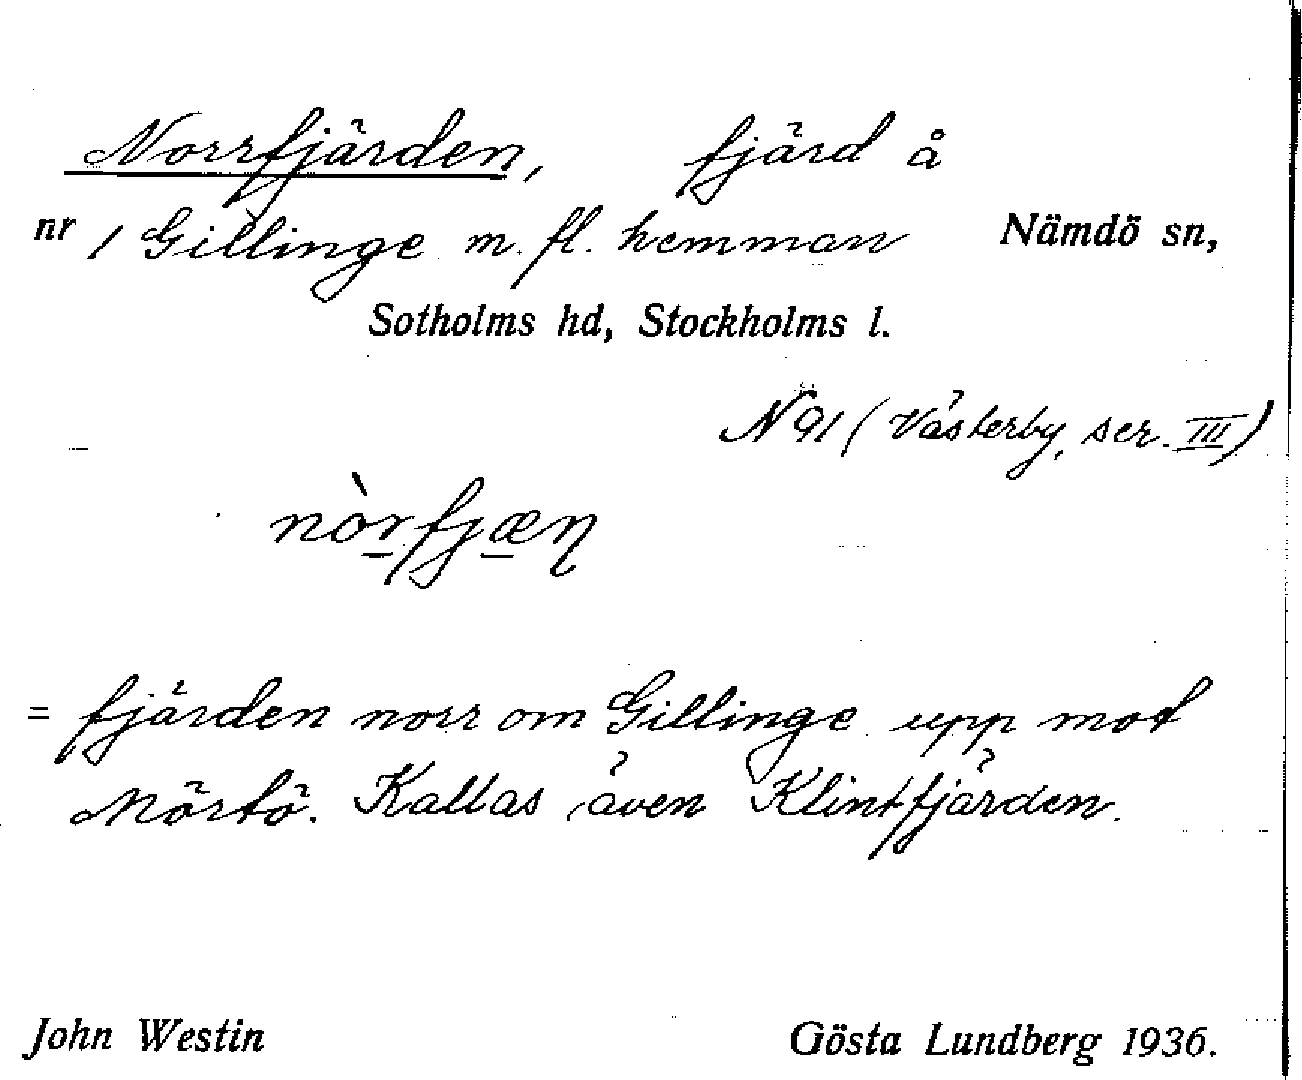 Norrfjärden, fjärd å
nr 1 Gillinge m. fl. hemman Nämdö sn,
Sotholms hd, Stockholms l.
N 91 (Västerby, ser. III)
nòrfjæn
= fjärden norr om Gillinge upp mot
Mörtö. Kallas även Klintfjärden.
John Westin Gösta Lundberg 1936.